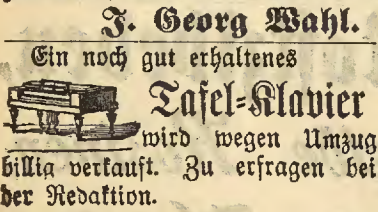 J. Georg Wahl.
Ein noch gut erhaltenes
Tafel=Klavier
wird wegen Umzug
billig verkauft. Zu erfragen bei
der Redaktion.